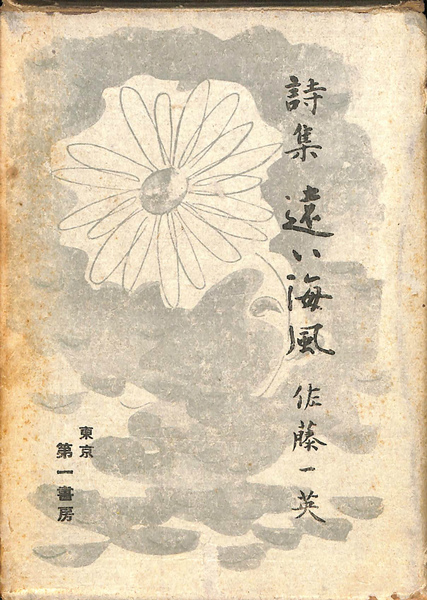 詩集 遠い海風 佐藤一英
東京
第一書房